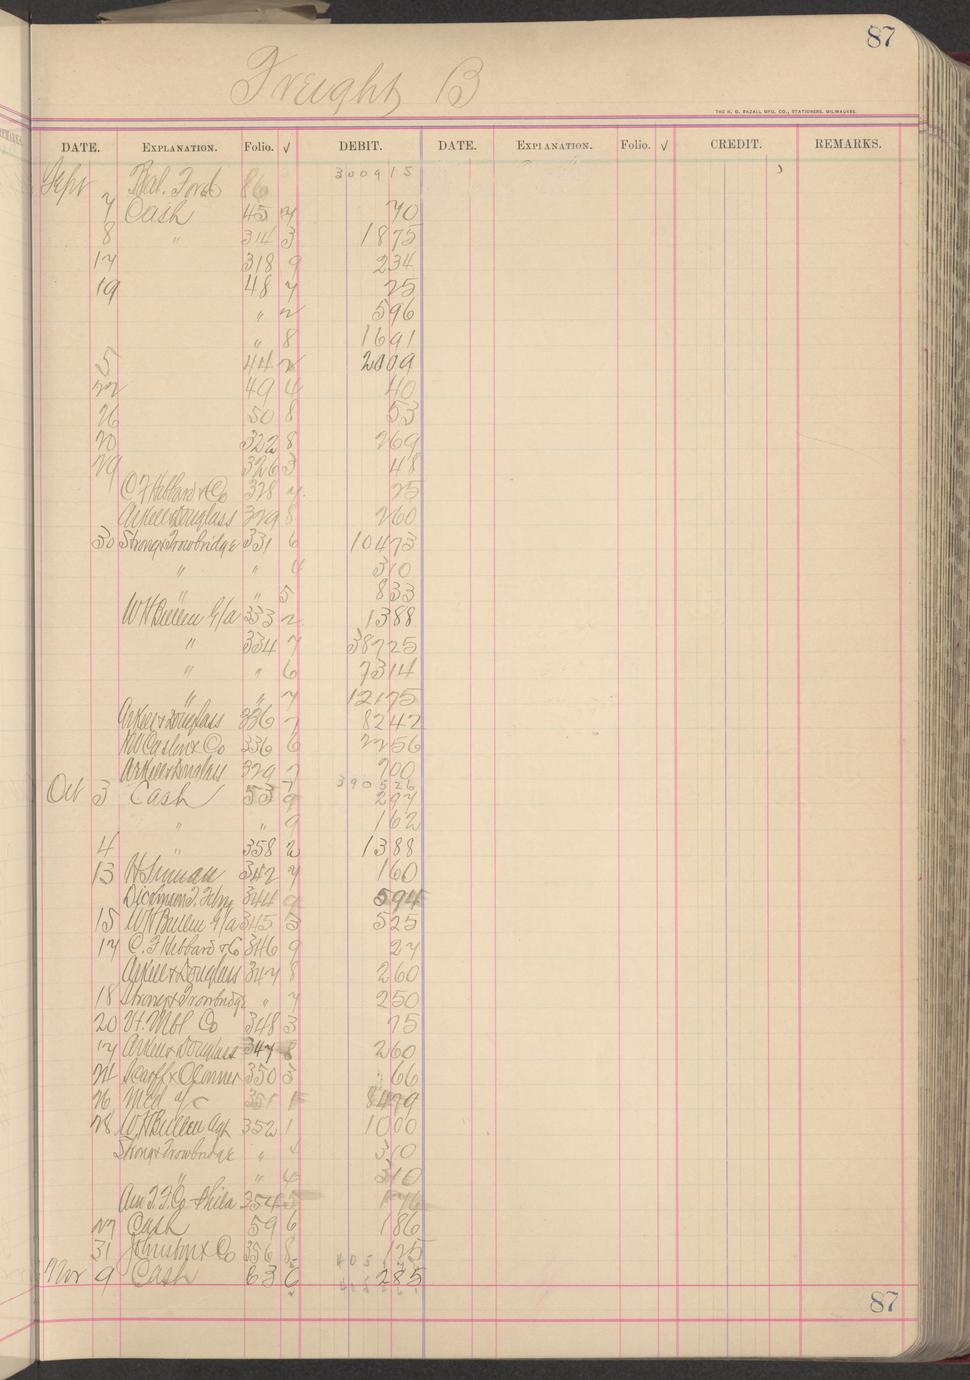 87
Freight B
THE H. G. RAZALL MFG. CO., STATIONERS, MILWAUKEE.
DATE. EXPLANATION. Folio. √ DEBIT. DATE. EXPLANATION. Folio. √ CREDIT. DATE. REMARKS.
Sept Bal. Ford 86 300915
7 Cash 45 7 70
8 " 314 3 1875
17 318 9 234
19 48 7 25
" 2 596
" 8 1691
5 44 2 2009
22 49 4 40
26 50 8 53
20 322 8 269
29 326 3 48
C F Hibbard & Co 328 25
Arkell & Douglass 329 8 260
30 Strong & Trowbridge 331 6 10473
" " 4 310
" " 5 833
W H Bullen G/a 333 2 1388
" 334 7 38725
" " 6 7314
" " 7 12175
Arkell & Douglass 336 7 8242
R W Caslin & Co 336 6 2256
Arkell & Douglass 329 7 700
390526
Oct 3 Cash 53 9 297
" " 9 162
4 " 358 2 1388
13 H Siman 342 7 160
344 9 594
15 W H Bullen G/a 345 5 525
17 C. F Hibbard & Co 346 9 27
Arkell & Douglass 347 8 260
18 Strong & Trowbridge " 7 250
20 Vt. Mbl Co 348 3 75
17 Arkell & Douglass 347 8 260
24 Scarff & OConner 350 3 66
26 Mcd a/c 351
28 W H Bullen Agt 352 1 1000
Strong & Trowbridge " 4 310
" " 4 310
Am T. F. Co Phila 354 5 176
27 Cash 59 6 186
31 Johnston & Co 356 8 125
Nov 9 Cash 63 6 285
87